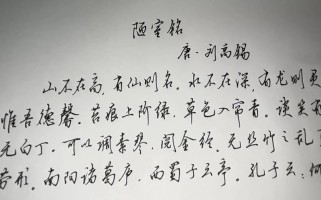 陋室铭
唐·刘禹锡
山不在高,有仙则名。水不在深,有龙则灵
惟吾德馨。苔痕上阶绿,草色入帘青。谈笑有
无白丁。可以调素琴,阅金经。无丝竹之乱耳
劳形。南阳诸葛庐,西蜀子云亭。孔子云:何